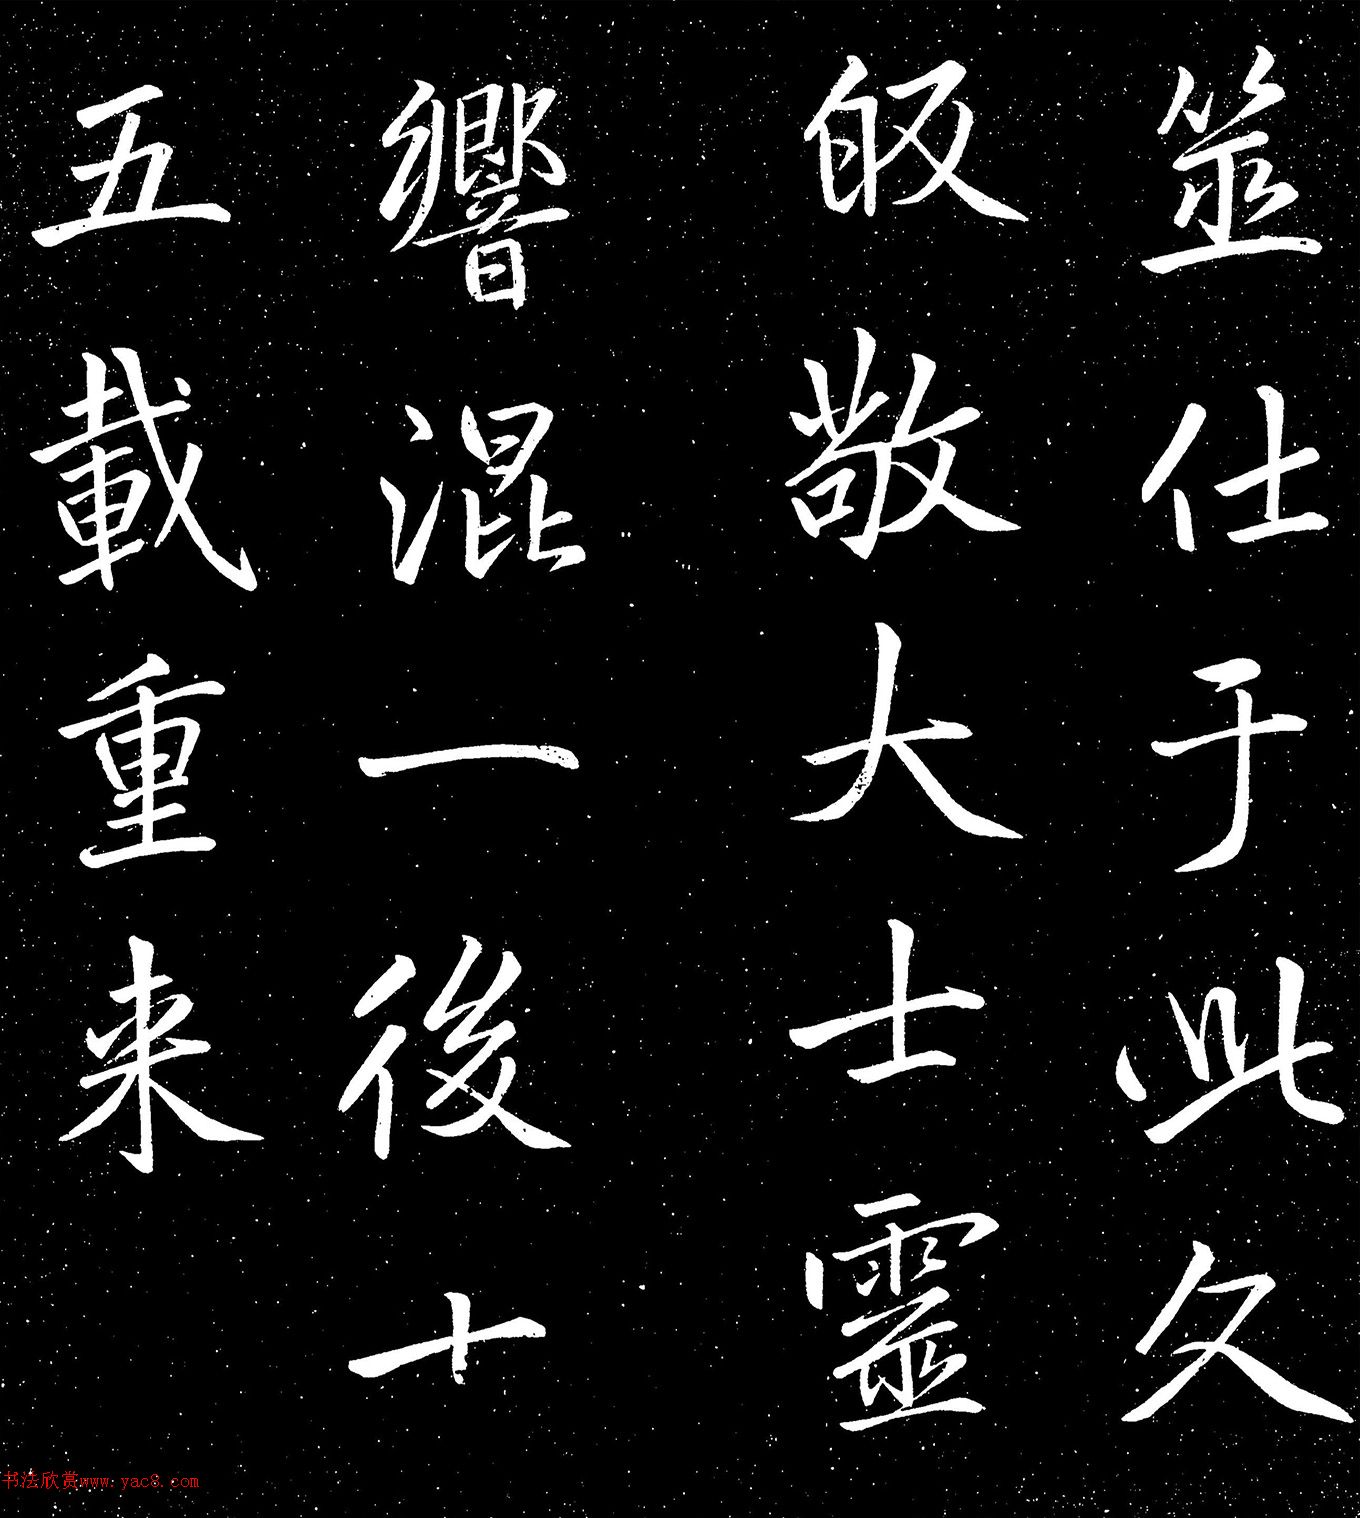 筮仕于此久
皈敬大士靈
響混一後十
五載重来
书法欣赏www.yac8.com